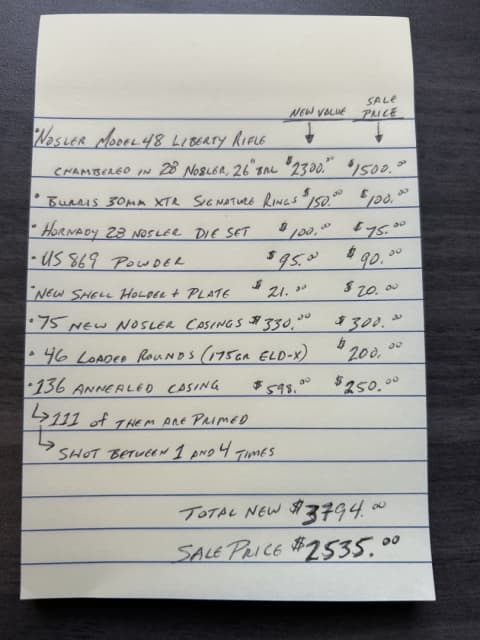 NEW VALUE SALE PRICE
•NOSLER MODEL 48 LIBERTY RIFLE
CHAMBERED IN 28 NOSLER, 26" BRL $2300.00 $1500.00
• BURRIS 30MM XTR SIGNATURE RINGS $150.00 $100.00
• HORNADY 28 NOSLER DIE SET $100.00 $75.00
• US 869 POWDER $95.00 $90.00
•NEW SHELL HOLDER + PLATE $21.00 $20.00
•75 NEW NOSLER CASINGS $330.00 $300.00
• 46 LOADED ROUNDS (175GR ELD-X) $200.00
•136 ANNEALED CASING $598.00 $250.00
↳111 OF THEM ARE PRIMED
↳SHOT BETWEEN 1 AND 4 TIMES
TOTAL NEW $3794.00
SALE PRICE $2535.00